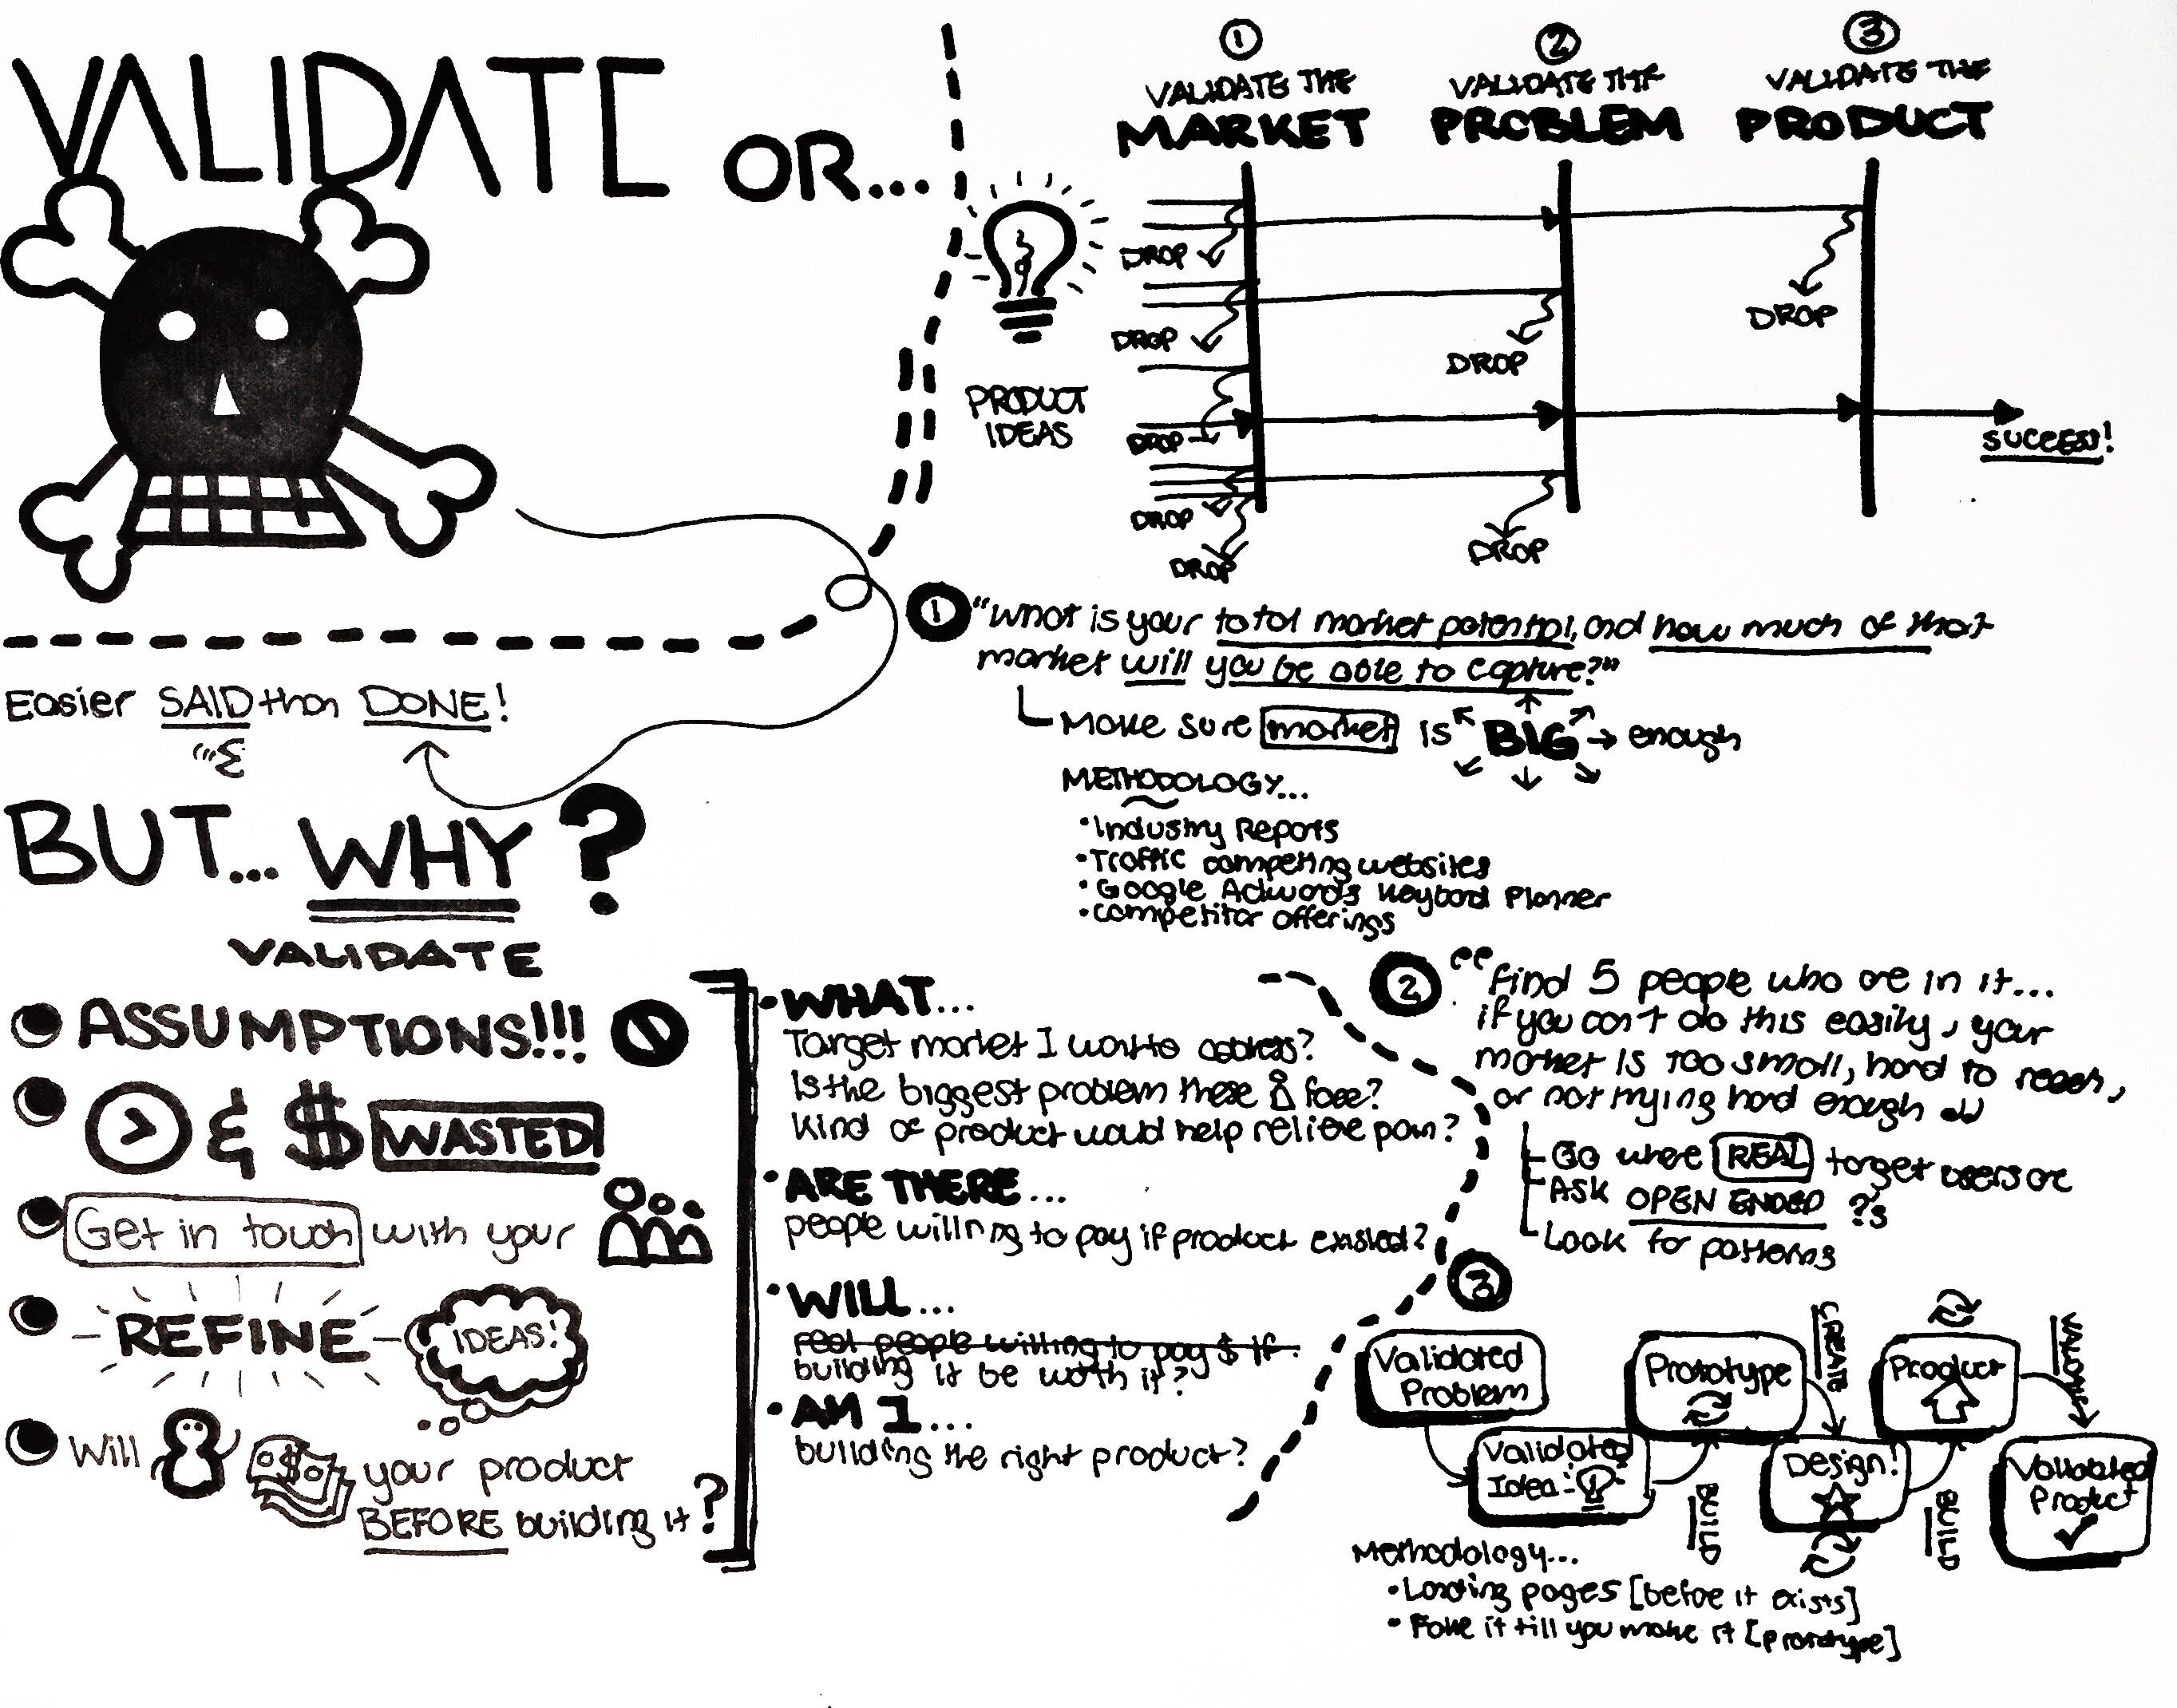 VALIDATE OR...
Easier SAID than DONE!
BUT... WHY?
VALIDATE
ASSUMPTIONS!!!
& $ WASTED
Get in touch with your
REFINE IDEAS!
Will $ your product
BEFORE building it?
• WHAT...
Target market I want to address?
Is the biggest problem these face?
Kind of product would help relieve pain?
• ARE THERE...
people willing to pay if product existed?
• WILL...
feel people willing to pay $ if
building it be worth it?
• AM I...
building the right product?
1
VALIDATE THE
MARKET
2
VALIDATE THE
PROBLEM
3
VALIDATE THE
PRODUCT
PRODUCT
IDEAS
DROP
DROP
DROP
DROP
DROP
DROP
DROP
DROP
SUCCESS!
1 "What is your total market potential, and how much of that
market will you be able to capture?"
Make sure market is BIG enough
METHODOLOGY...
• Industry Reports
• Traffic competing websites
• Google Adwords Keyword Planner
• competitor offerings
2 "Find 5 people who are in it...
if you can't do this easily, your
market is too small, hard to reach,
or not trying hard enough"
Go where REAL target users are
ASK OPEN ENDED ?'s
Look for patterns
3
Validated
Problem
Validated
Idea
BUILD
Prototype
CREATE
Design!
BUILD
Product
VALIDATE
Validated
Product
Methodology...
• Landing pages [before it exists]
• Fake it till you make it [prototype]